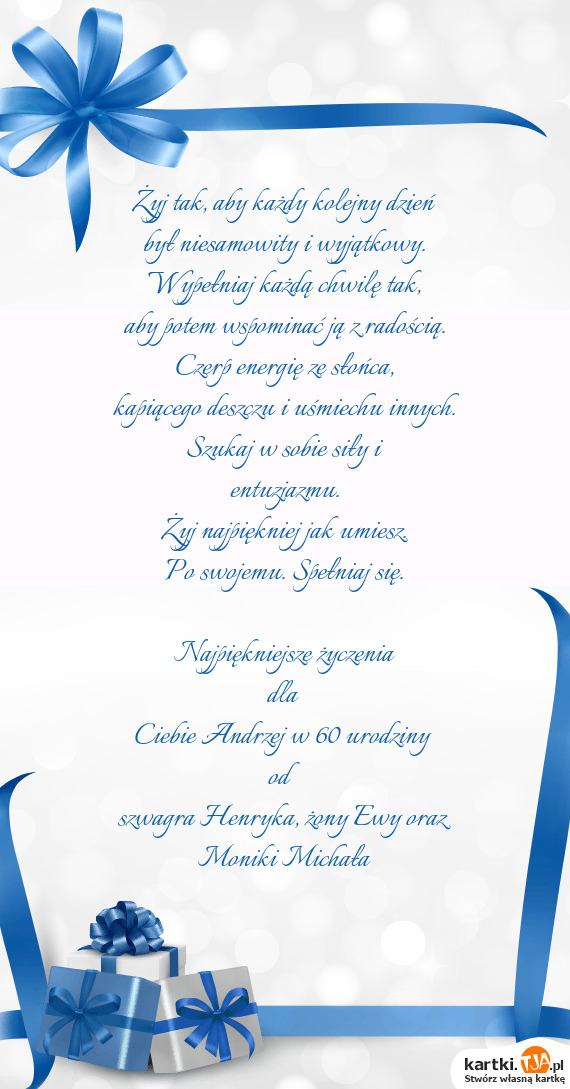 Żyj tak, aby każdy kolejny dzień
był niesamowity i wyjątkowy.
Wypełniaj każdą chwilę tak,
aby potem wspominać ją z radością.
Czerp energię ze słońca,
kapiącego deszczu i uśmiechu innych.
Szukaj w sobie siły i
entuzjazmu.
Żyj najpiękniej jak umiesz.
Po swojemu. Spełniaj się.
Najpiękniejsze życzenia
dla
Ciebie Andrzej w 60 urodziny
od
szwagra Henryka, żony Ewy oraz
Moniki Michała
kartki.TJA.pl
Stwórz własną kartkę